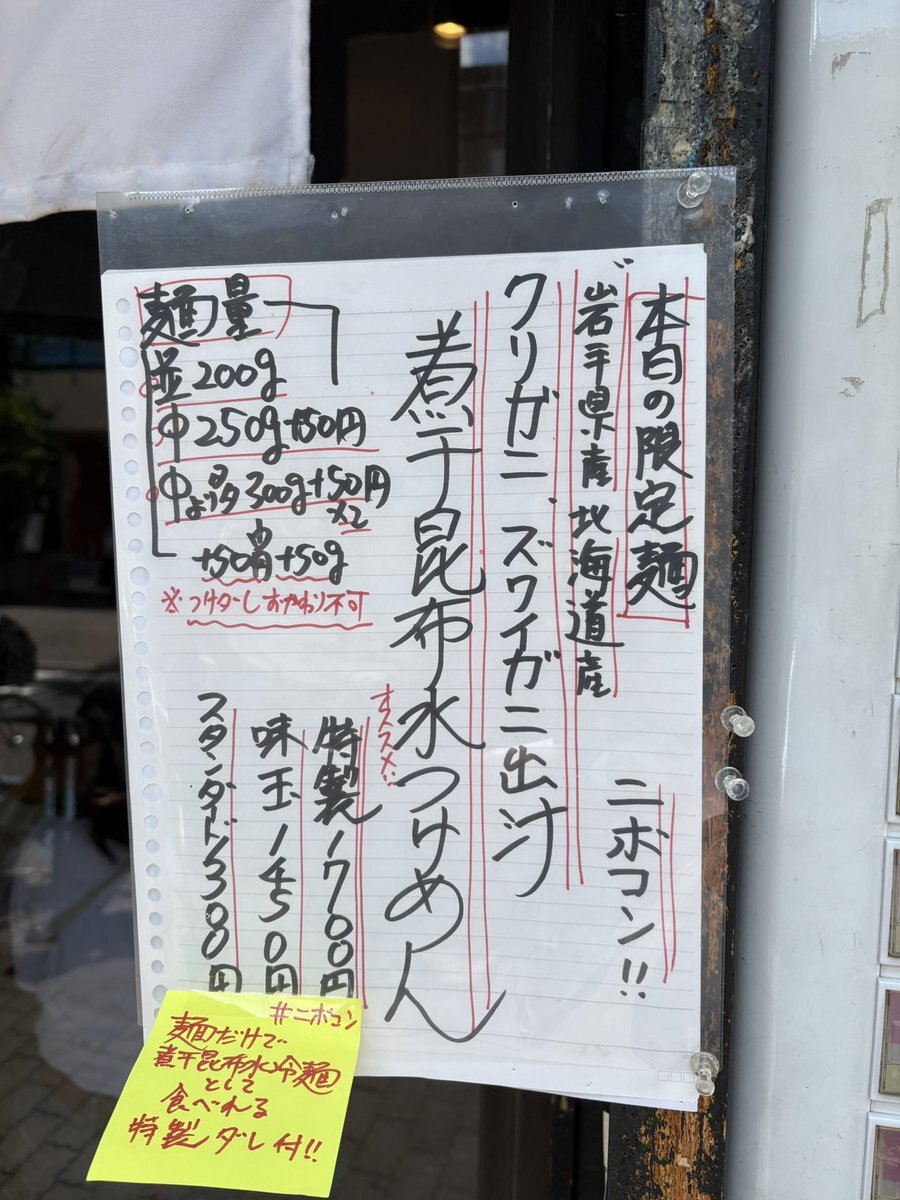 本日の限定麺
ニボコン!!
岩手県産 北海道産
クリガニ、ズワイガニ出汁
煮干昆布水つけめん
オススメ!!
特製1700円
味玉1450円
スタンダード1300円
麺量
並200g
中250g+50円
中より多300g+50円×2
+50円+50g
※つけダレおかわり不可
#ニボコン
麺だけで
煮干昆布水冷麺
として
食べれる
特製ダレ付!!